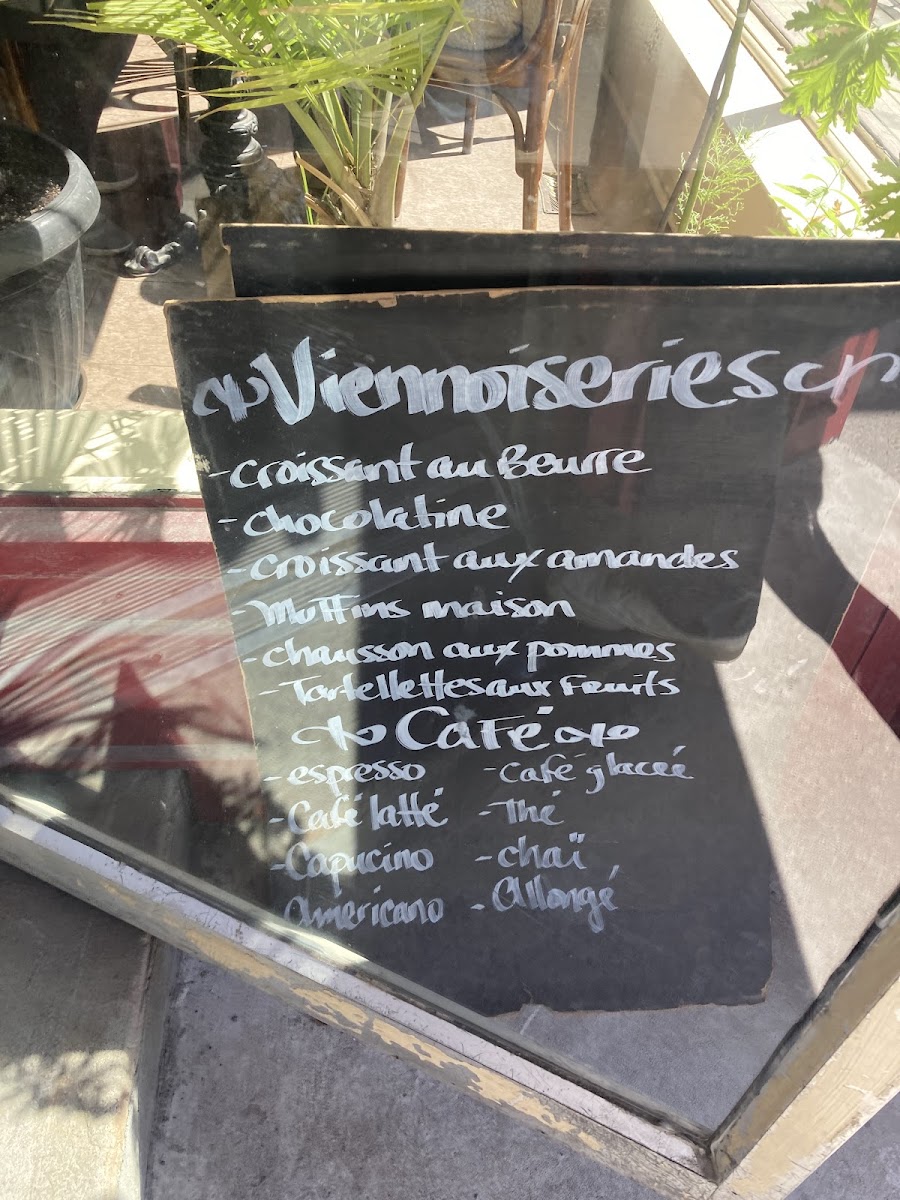 Viennoiseries
- Croissant au Beurre
- chocolatine
- croissant aux amandes
- Muffins maison
- chausson aux pommes
- Tartellettes aux Fruits
Café
- espresso
- Café latté
- Capucino
- Americano
- Café glacée
- Thé
- chaï
- Allongé